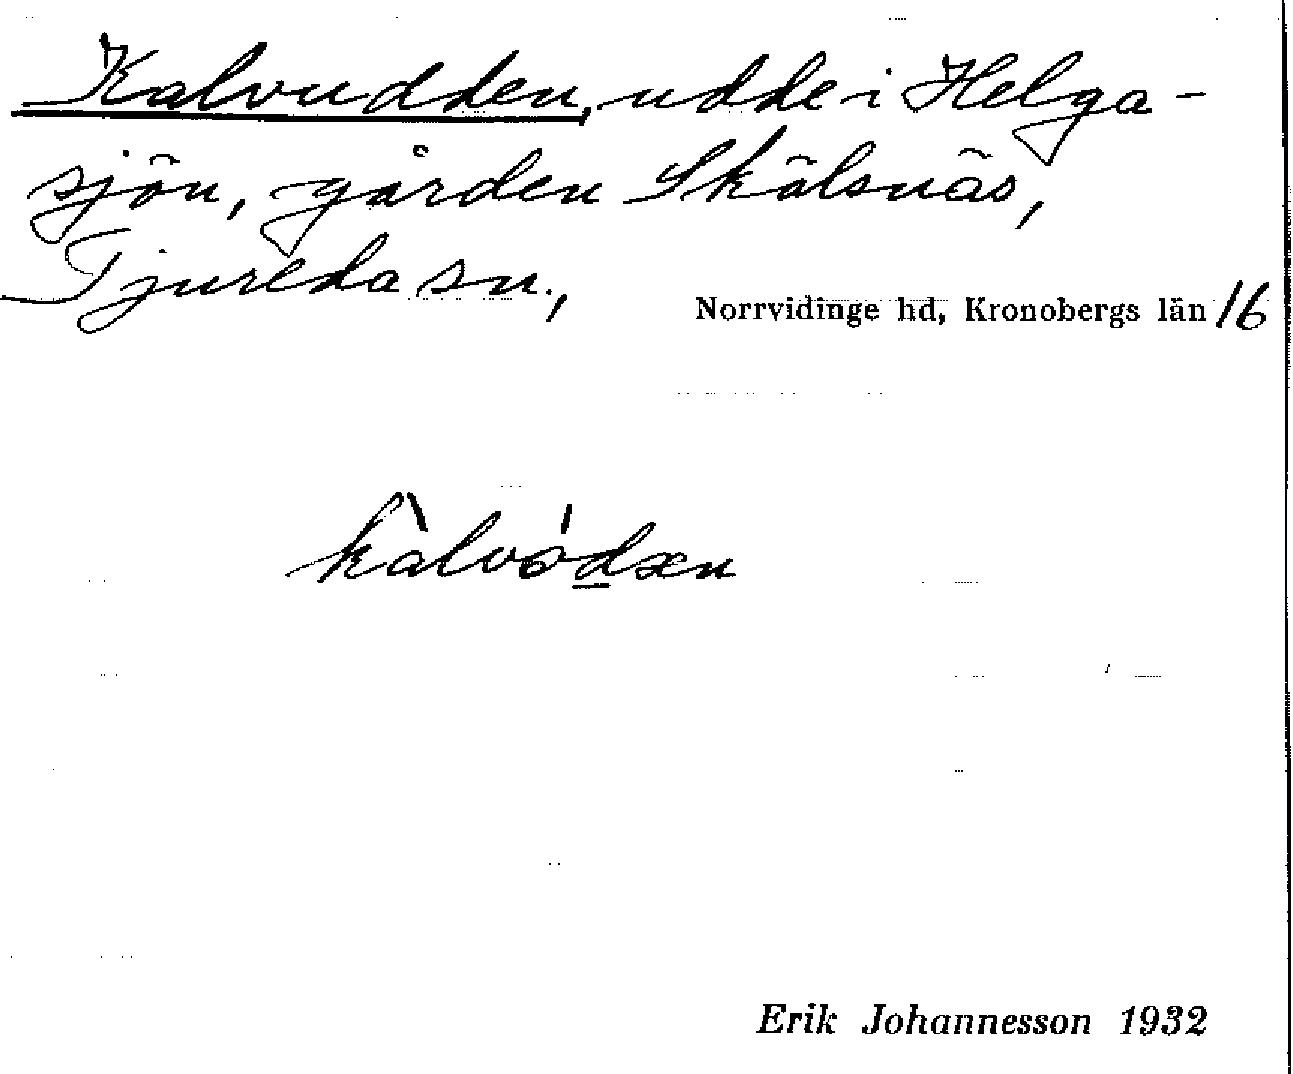 Kalvudden, udde i Helga-
sjön, gården Skälsnäs,
Tjureda sn.,
Norrvidinge hd, Kronobergs län 16
kàlvód̲ən
Erik Johannesson 1932